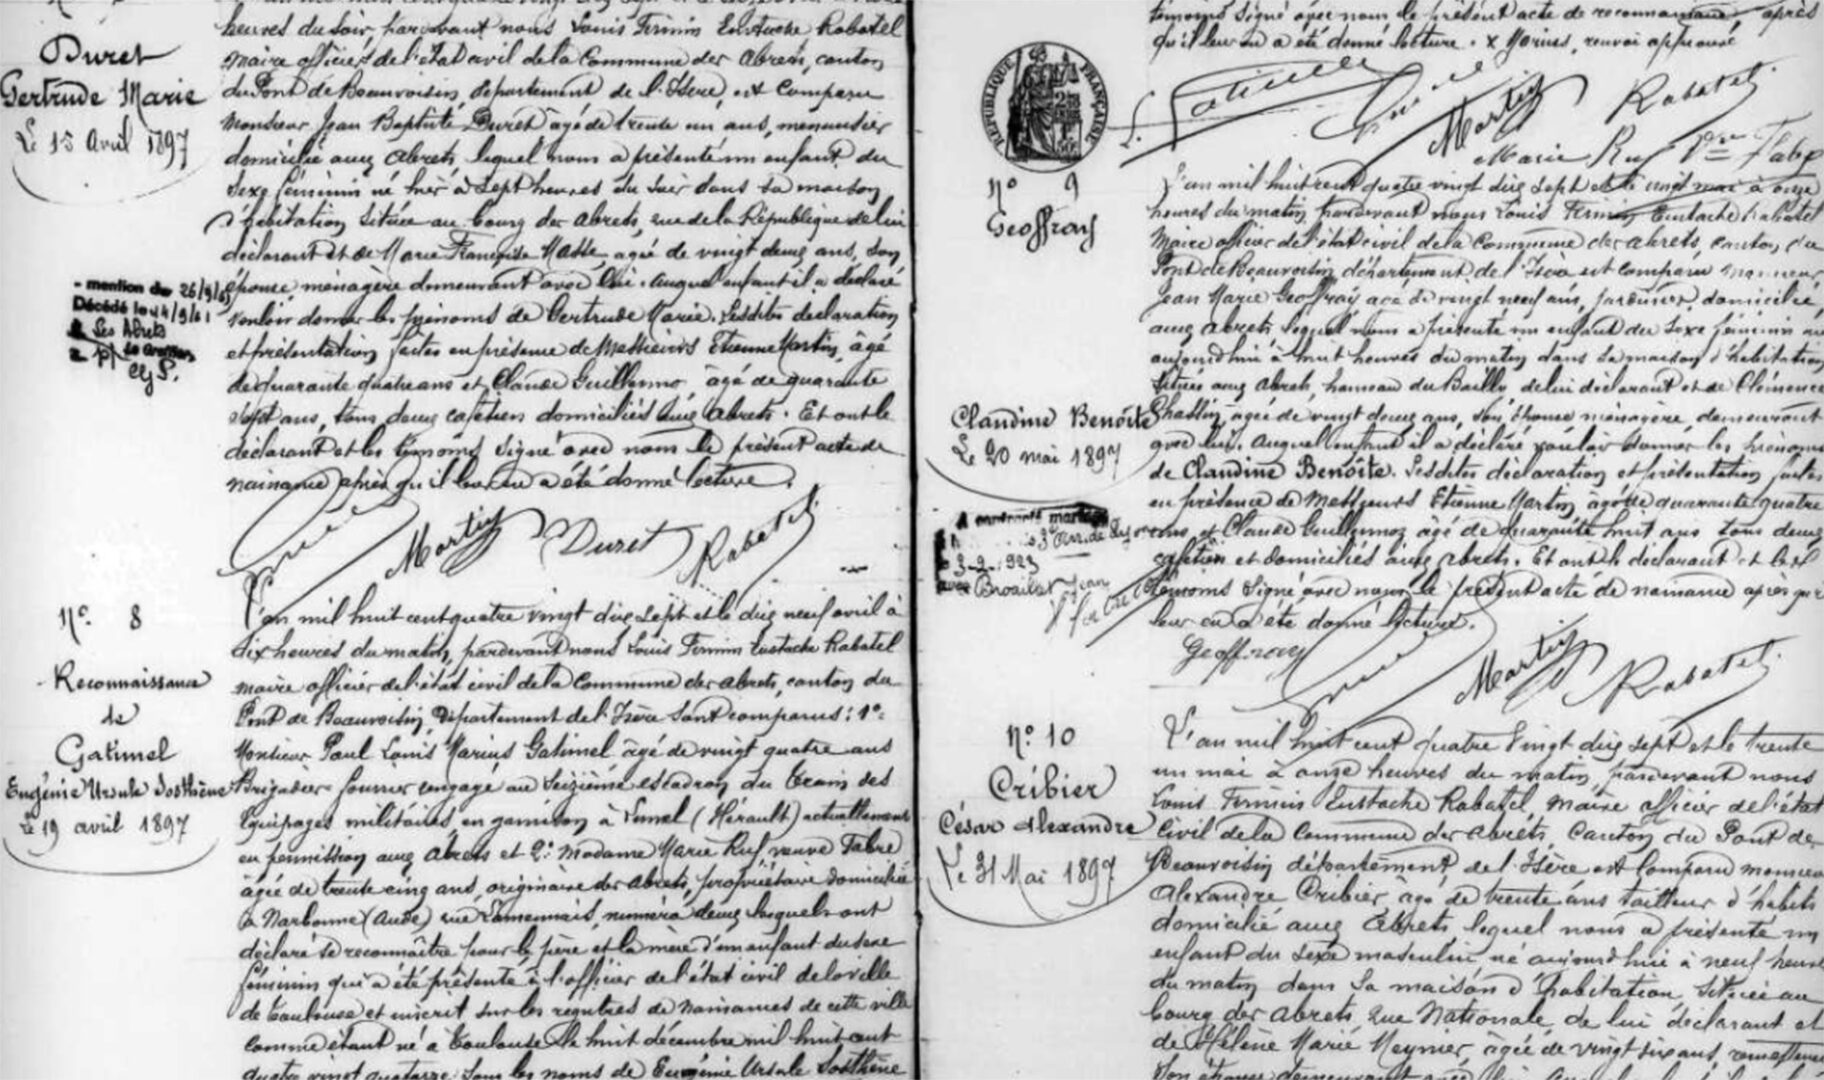 Duret
Gertrude Marie
Le 15 Avril 1897
- mention du 26/9/
Décédé le 14/9/61
Les Abrets
heures du soir, pardevant nous Louis Firmin Eustache Rabatel
maire officier de l'état civil de la Commune des Abrets, canton
du Pont de Beauvoisin, département de l'Isère, est Comparu
Monsieur Jean Baptiste Duret âgé de trente un ans, menuisier
domicilié aux Abrets lequel nous a présenté un enfant du
Sexe féminin né hier à Sept heures du Soir dans sa maison
d'habitation Située au bourg des Abrets, rue de la République de lui
déclarant et de Marie Françoise Massé, agée de vingt deux ans, son
épouse ménagère demeurant avec lui. auquel enfant il a déclaré
vouloir donner les prénoms de Gertrude Marie. Lesdites déclaration
et présentation faites en présence de Messieurs Etienne Martin, âgé
de quarante quatre ans et Claude Guillermo âgé de quarante
sept ans, tous deux cafetiers domiciliés aux Abrets. Et ont le
déclarant et les témoins Signé avec nous le présent acte de
naissance après qu'il leur en a été donné lecture.
Martin Duret Rabatel
N° 8
Reconnaissance
de
Gatimel
Eugénie Ursule Sosthène
Le 19 avril 1897
L'an mil huit cent quatre vingt dix Sept et le dix neuf avril à
dix heures du matin, pardevant nous Louis Firmin Eustache Rabatel
maire officier de l'état civil de la Commune des Abrets, canton du
Pont de Beauvoisin, Département de l'Isère Sont comparus: 1°:
Monsieur Paul Louis Marius Gatimel âgé de vingt quatre ans
Brigadier fourrier engagé au Seizième escadron du Train des
Equipages militaires en garnison à Lunel (Hérault) actuellement
en permission aux Abrets et 2°: Madame Marie Ruf veuve Fabre
âgée de trente cinq ans, originaire des Abrets, propriétaire domiciliée
à Narbonne (Aude) rue Lamennais, numéro deux lesquels ont
déclaré se reconnaître pour le père et la mère d'un enfant du sexe
féminin qui a été présenté à l'officier de l'état civil de la ville
de Toulouse et inscrit sur les registres de naissances de cette ville
comme étant né à Toulouse le huit décembre mil huit cent
quatre vingt quatorze Sous les noms de Eugénie Ursule Sosthène
témoins Signé avec nous le présent acte de reconnaissance, après
qu'il leur en a été donné lecture. x Marius, renvoi approuvé
RÉPUBLIQUE FRANÇAISE
Gatimel Martin Rabatel
Marie Ruf Vve Fabre
N° 9
Geoffray
Claudine Benoîte
Le 20 mai 1897
A contracté mariage
3e Arr. de Lyon
3-2-1923
avec Brouillet Jean
L'an mil huit cent quatre vingt dix Sept et le vingt mai à onze
heures du matin, pardevant nous Louis Firmin Eustache Rabatel
Maire officier de l'état civil de la Commune des Abrets, canton du
Pont de Beauvoisin, département de l'Isère est comparu Monsieur
Jean Marie Geoffray agé de vingt neuf ans, jardinier domicilié
aux Abrets lequel nous a présenté un enfant du Sexe féminin né
aujourd'hui à huit heures du matin dans Sa maison d'habitation
Située aux Abrets, hameau du Bailly de lui déclarant et de Clémence
agée de vingt deux ans, son épouse ménagère, demeurant
avec lui. auquel enfant il a déclaré vouloir donner les prénoms
de Claudine Benoîte. Lesdites déclaration et présentation faites
en présence de Messieurs Etienne Martin âgé de quarante quatre
ans et Claude Guillermoz âgé de quarante huit ans tous deux
cafetiers et domiciliés aux Abrets. Et ont le déclarant et les
témoins Signé avec nous le présent acte de naissance après qu'il
leur en a été donné lecture.
Geoffray Martin Rabatel
N° 10
Cribier
César Alexandre
Le 31 Mai 1897
L'an mil huit cent quatre vingt dix sept et le trente
un mai à onze heures du matin, pardevant nous
Louis Firmin Eustache Rabatel, Maire officier de l'état
Civil de la Commune des Abrets, Canton du Pont de
Beauvoisin département de l'Isère est Comparu monsieur
Alexandre Cribier, agé de trente ans tailleur d'habits
domicilié aux Abrets lequel nous a présenté un
enfant du Sexe masculin né aujourd'hui à neuf heures
du matin dans Sa maison d'habitation, Située au
bourg des Abrets, rue Nationale, de lui déclarant et
de Hélène Marie Meynier, agée de vingt six ans,
Son épouse demeurant avec lui.